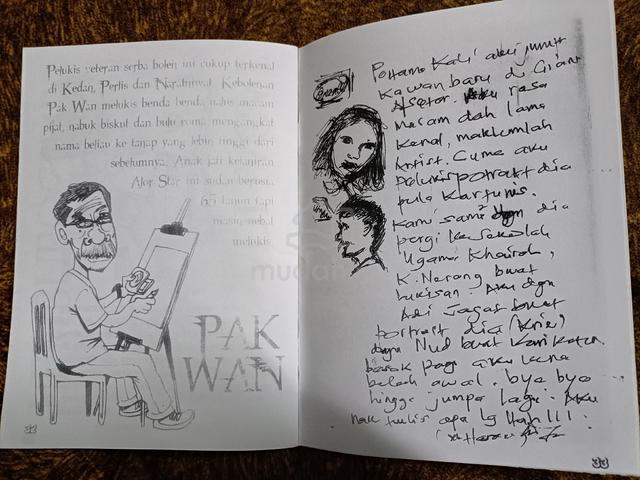 Pelukis veteran serba boleh ini cukup terkenal
di Kedah, Perlis dan Narathiwat. Kebolehan
Pak Wan melukis benda benda halus macam
pijat, habuk biskut dan bulu roma mengangkat
nama beliau ke tahap yang lebih tinggi dari
sebelumnya. Anak jati kelahiran
Alor Star ini sudah berusia
65 tahun tapi
masih hebat
melukis.
PAK
WAN
32
mudah
Pertama kali aku jumpa
kawan baru di Giant
A/Setar. Aku rasa
macam dah lama
kenal, maklumlah
Artist. Cuma aku
pelukis potrait dia
pula kartunis.
Kami sama dgn dia
pergi ke sekolah
Ugama Khairah,
K. Nerang buat
lukisan. Aku dgn
Adi Jagat buat
portrait dia
dgn Nud buat karikatur
esok pagi aku kena
balah awal. bye bye
hingga jumpa lagi. Aku
nak tulis apa lg Hah!!!
33